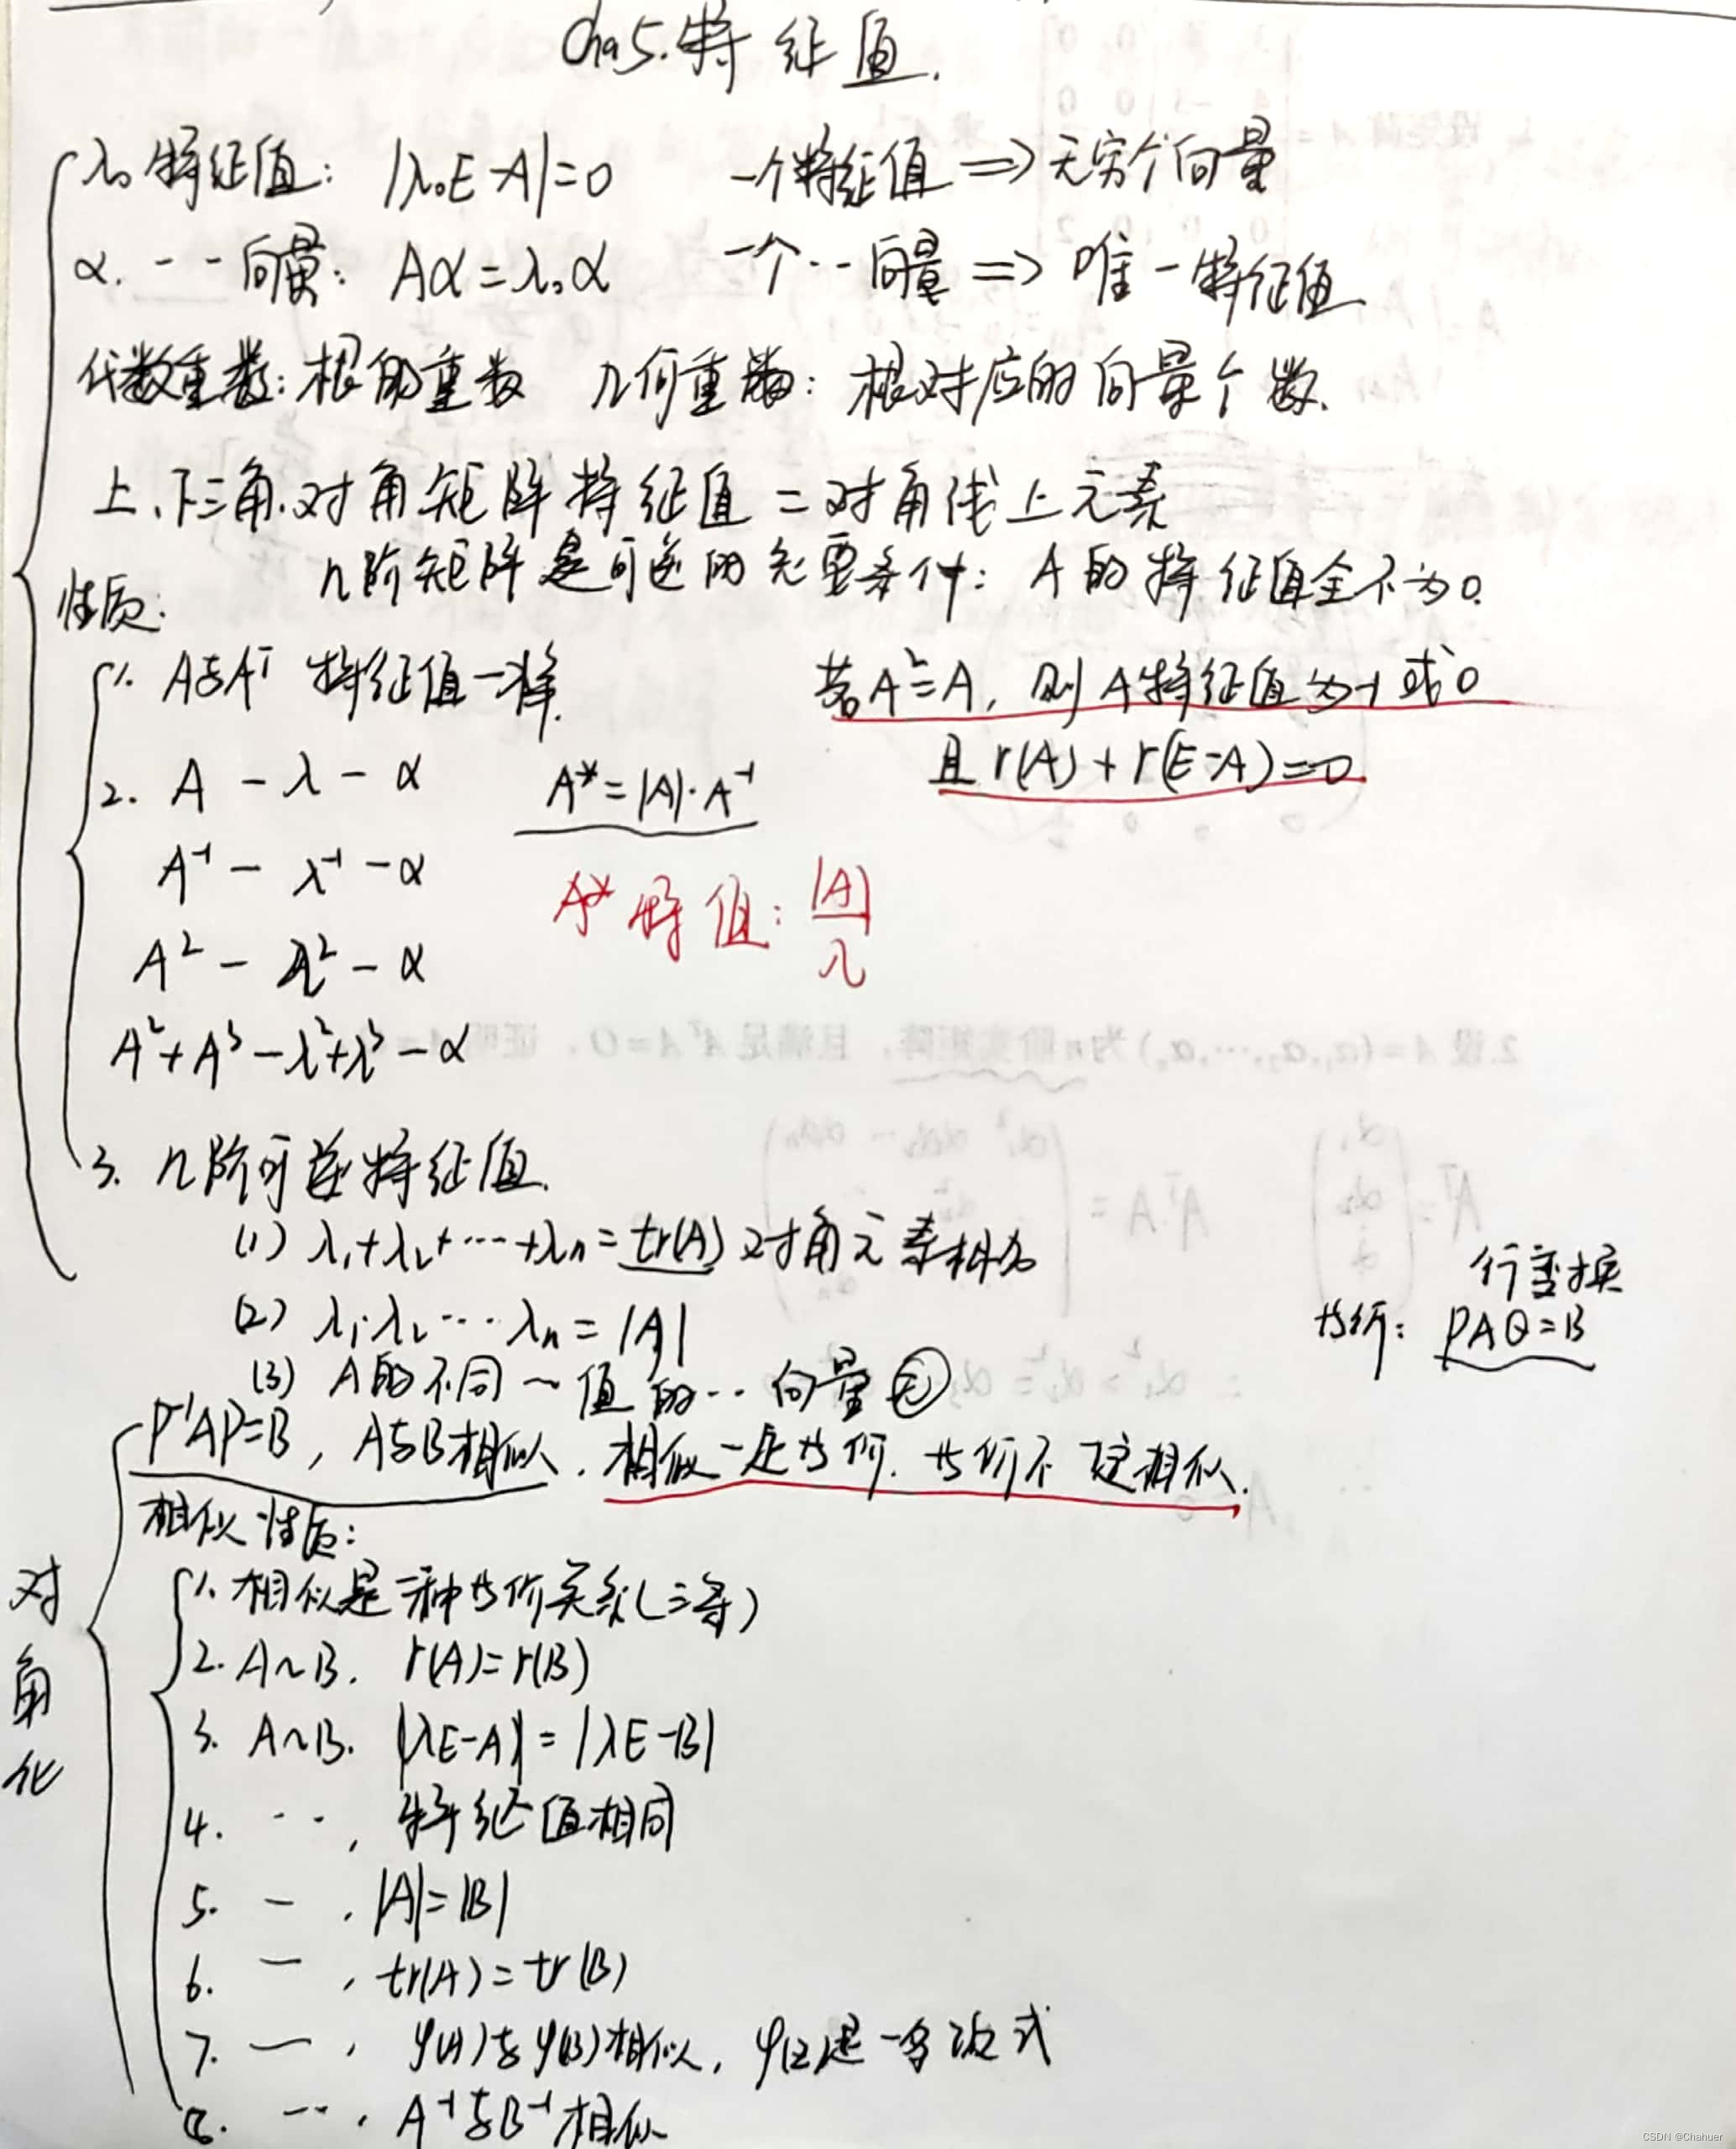 Cha5.特征值.
λ₀特征值: |λ₀E-A|=0 一个特征值 => 无穷个向量
α. -- 向量: Aα=λ₀α 一个--向量 => 唯一特征值
代数重数: 根的重数 几何重数: 根对应的向量个数.
上、下三角.对角矩阵特征值=对角线上元素
n阶矩阵是可逆的充要条件: A的特征值全不为0.
性质:
1. A与Aᵀ 特征值一样. 若A²=A, 则A特征值为1或0
2. A - λ - α A*=|A|·A⁻¹ 且 r(A)+r(E-A)=0
A⁻¹ - λ⁻¹ - α
A*特值: |A|/λ
A² - λ² - α
A²+A³ - λ²+λ³ - α
2.设A=(α₁,α₂,…,αₙ)为n阶实矩阵, 且满足AᵀA=O,
3. n阶可逆特征值.
(1) λ₁+λ₂+…+λₙ=tr(A) 对角元素相加
行变换
(2) λ₁·λ₂…λₙ=|A| 等价: PAQ=B
(3) A的不同~值的…向量无
P⁻¹AP=B, A与B相似. 相似一定等价. 等价不一定相似.
相似性质:
对角化
1. 相似是一种等价关系(三条)
2. A~B. r(A)=r(B)
3. A~B. |λE-A|=|λE-B|
4. --, 特征值相同
5. —. |A|=|B|
6. —, tr(A)=tr(B)
7. —, φ(A)与φ(B)相似, φ(z)是一多项式
8. --. A⁻¹与B⁻¹相似
CSDN @Chahuer